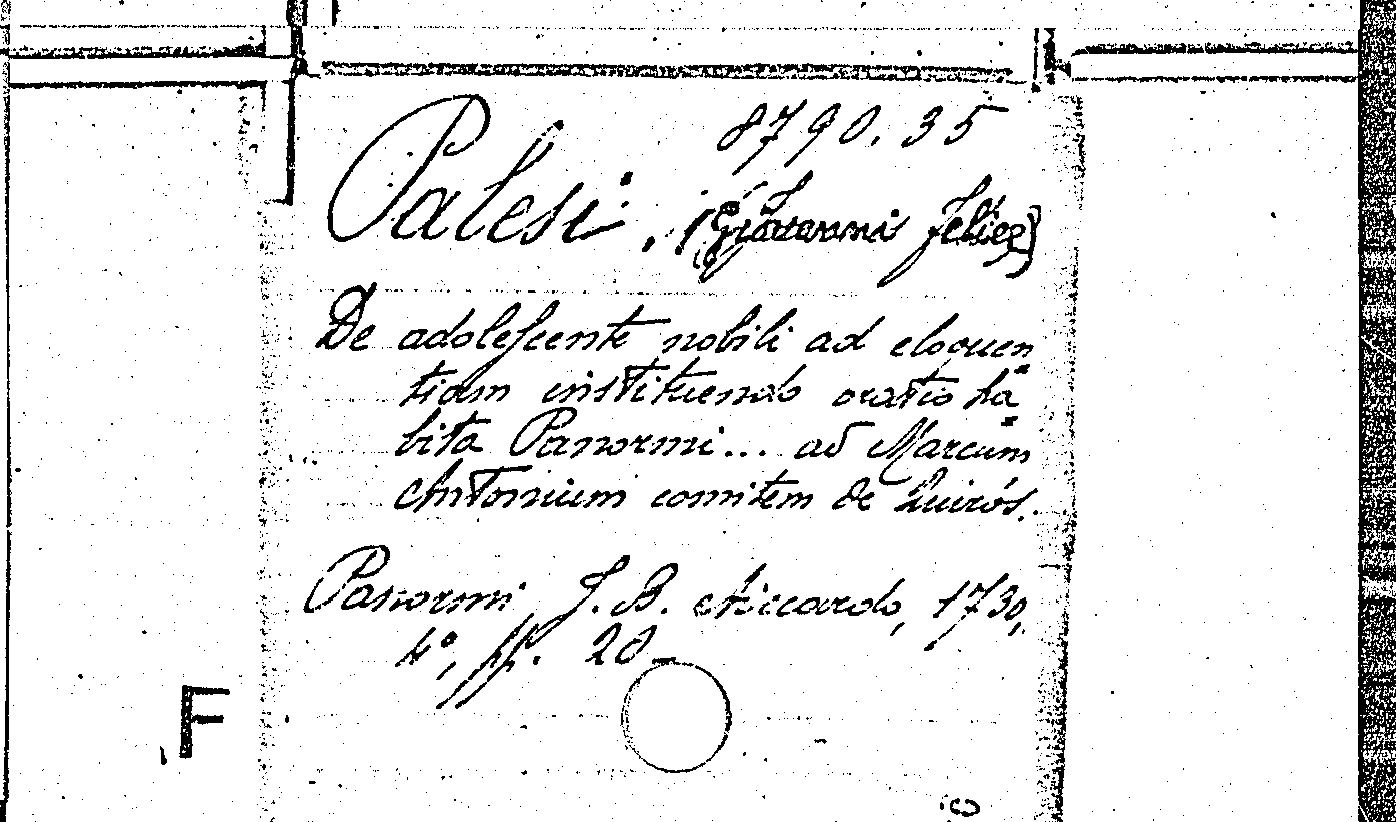 8790.35
Palesi. (Giovanni Felice)
De adolescente nobili ad eloquen=
tiam instituendo oratio ha=
bita Panormi... ad Marcum
Antonium comitem de Quirós.
Panormi, J. B. Aiccardo, 1730,
4°, pp. 20
F